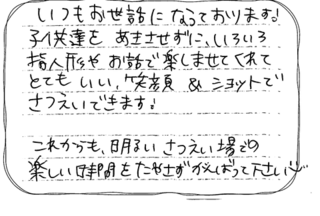 いつもお世話になっております。
子供達をあきさせずに、いろいろ
指人形やお話で楽しませてくれて
とてもいい、笑顔 & ショットで
さつえいできます。
これからも、明るいさつえい場での
楽しい時間をたやさずがんばって下さい